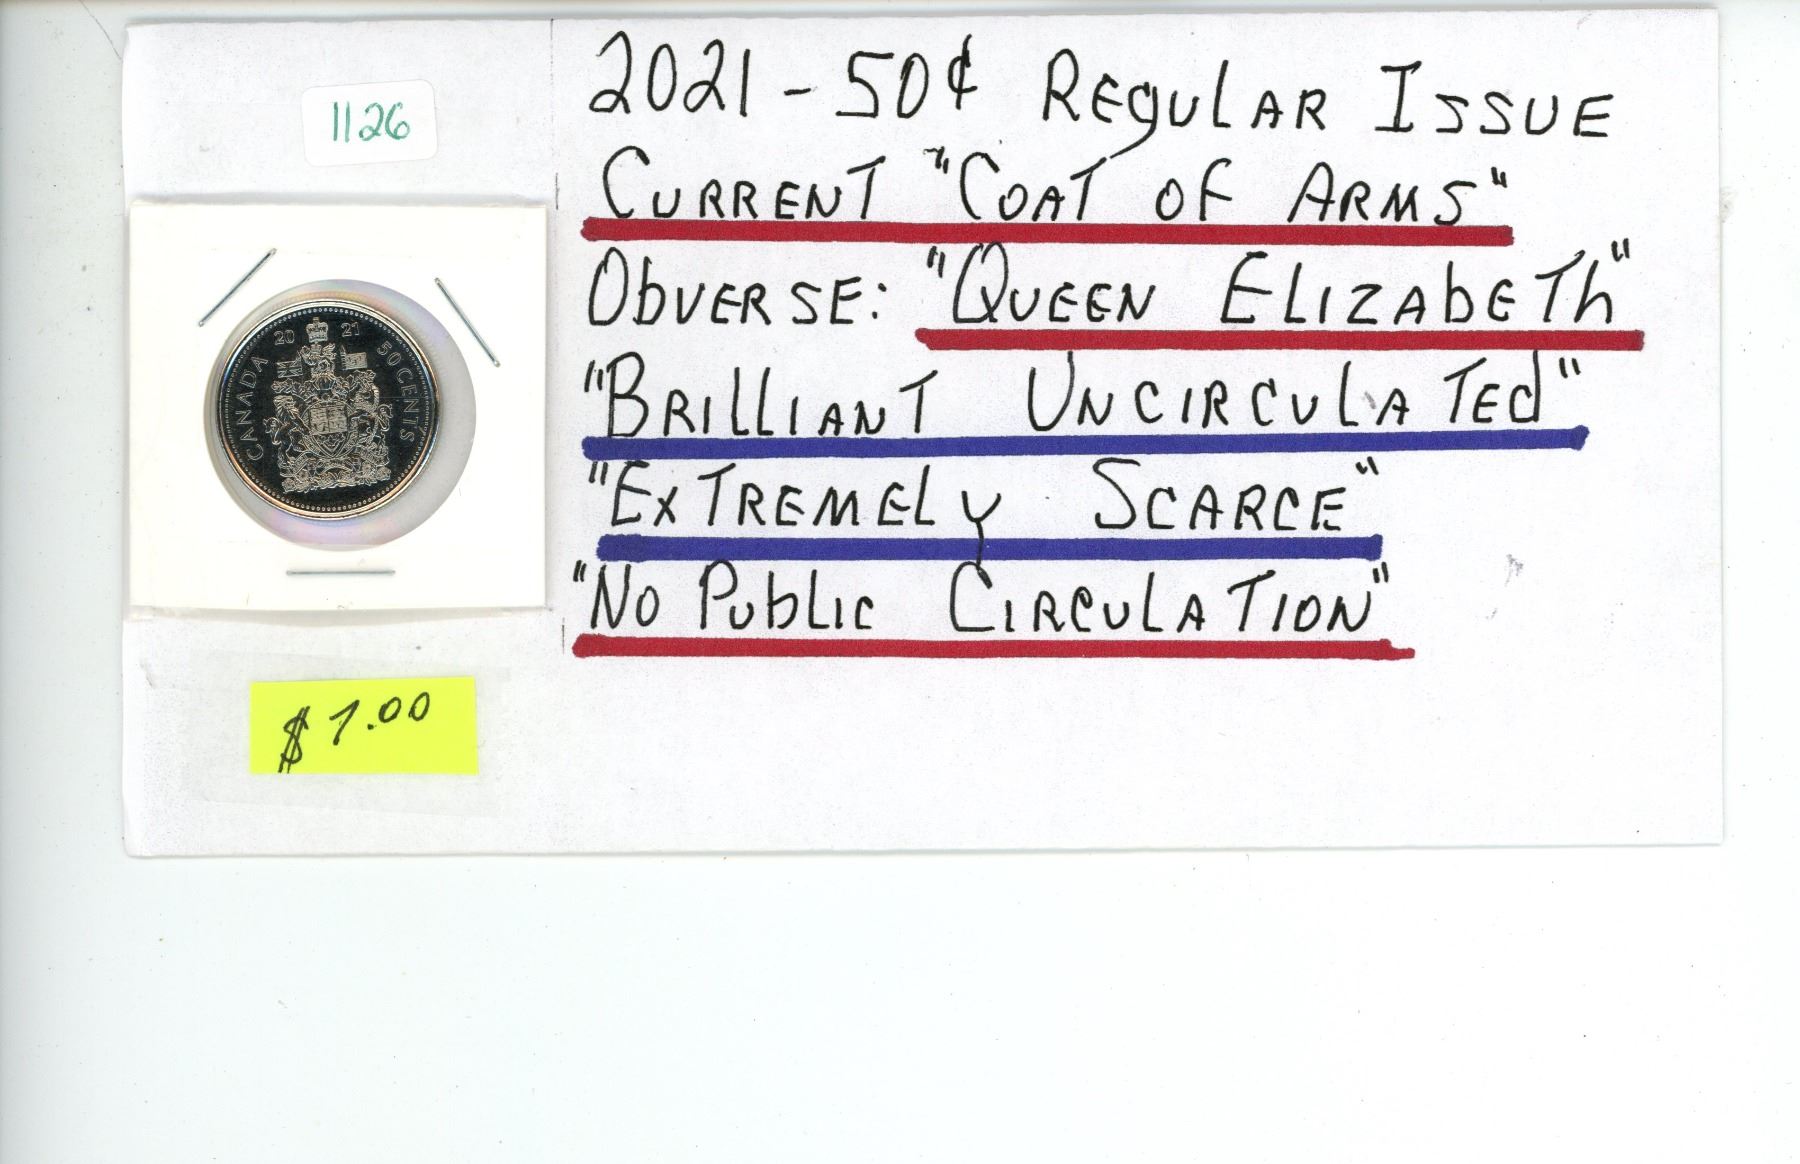 1126
2021 - 50¢ REgULAR ISSUE
CURRENT "COAT OF ARMS"
ObVERSE: "QUEEN ELIZAbETh"
"BRILLIANT UNCIRCULATEd"
"EXTREMELY SCARCE"
"NO PUbLIC CIRCULATION"
20 21
CANADA
50 CENTS
$7.00